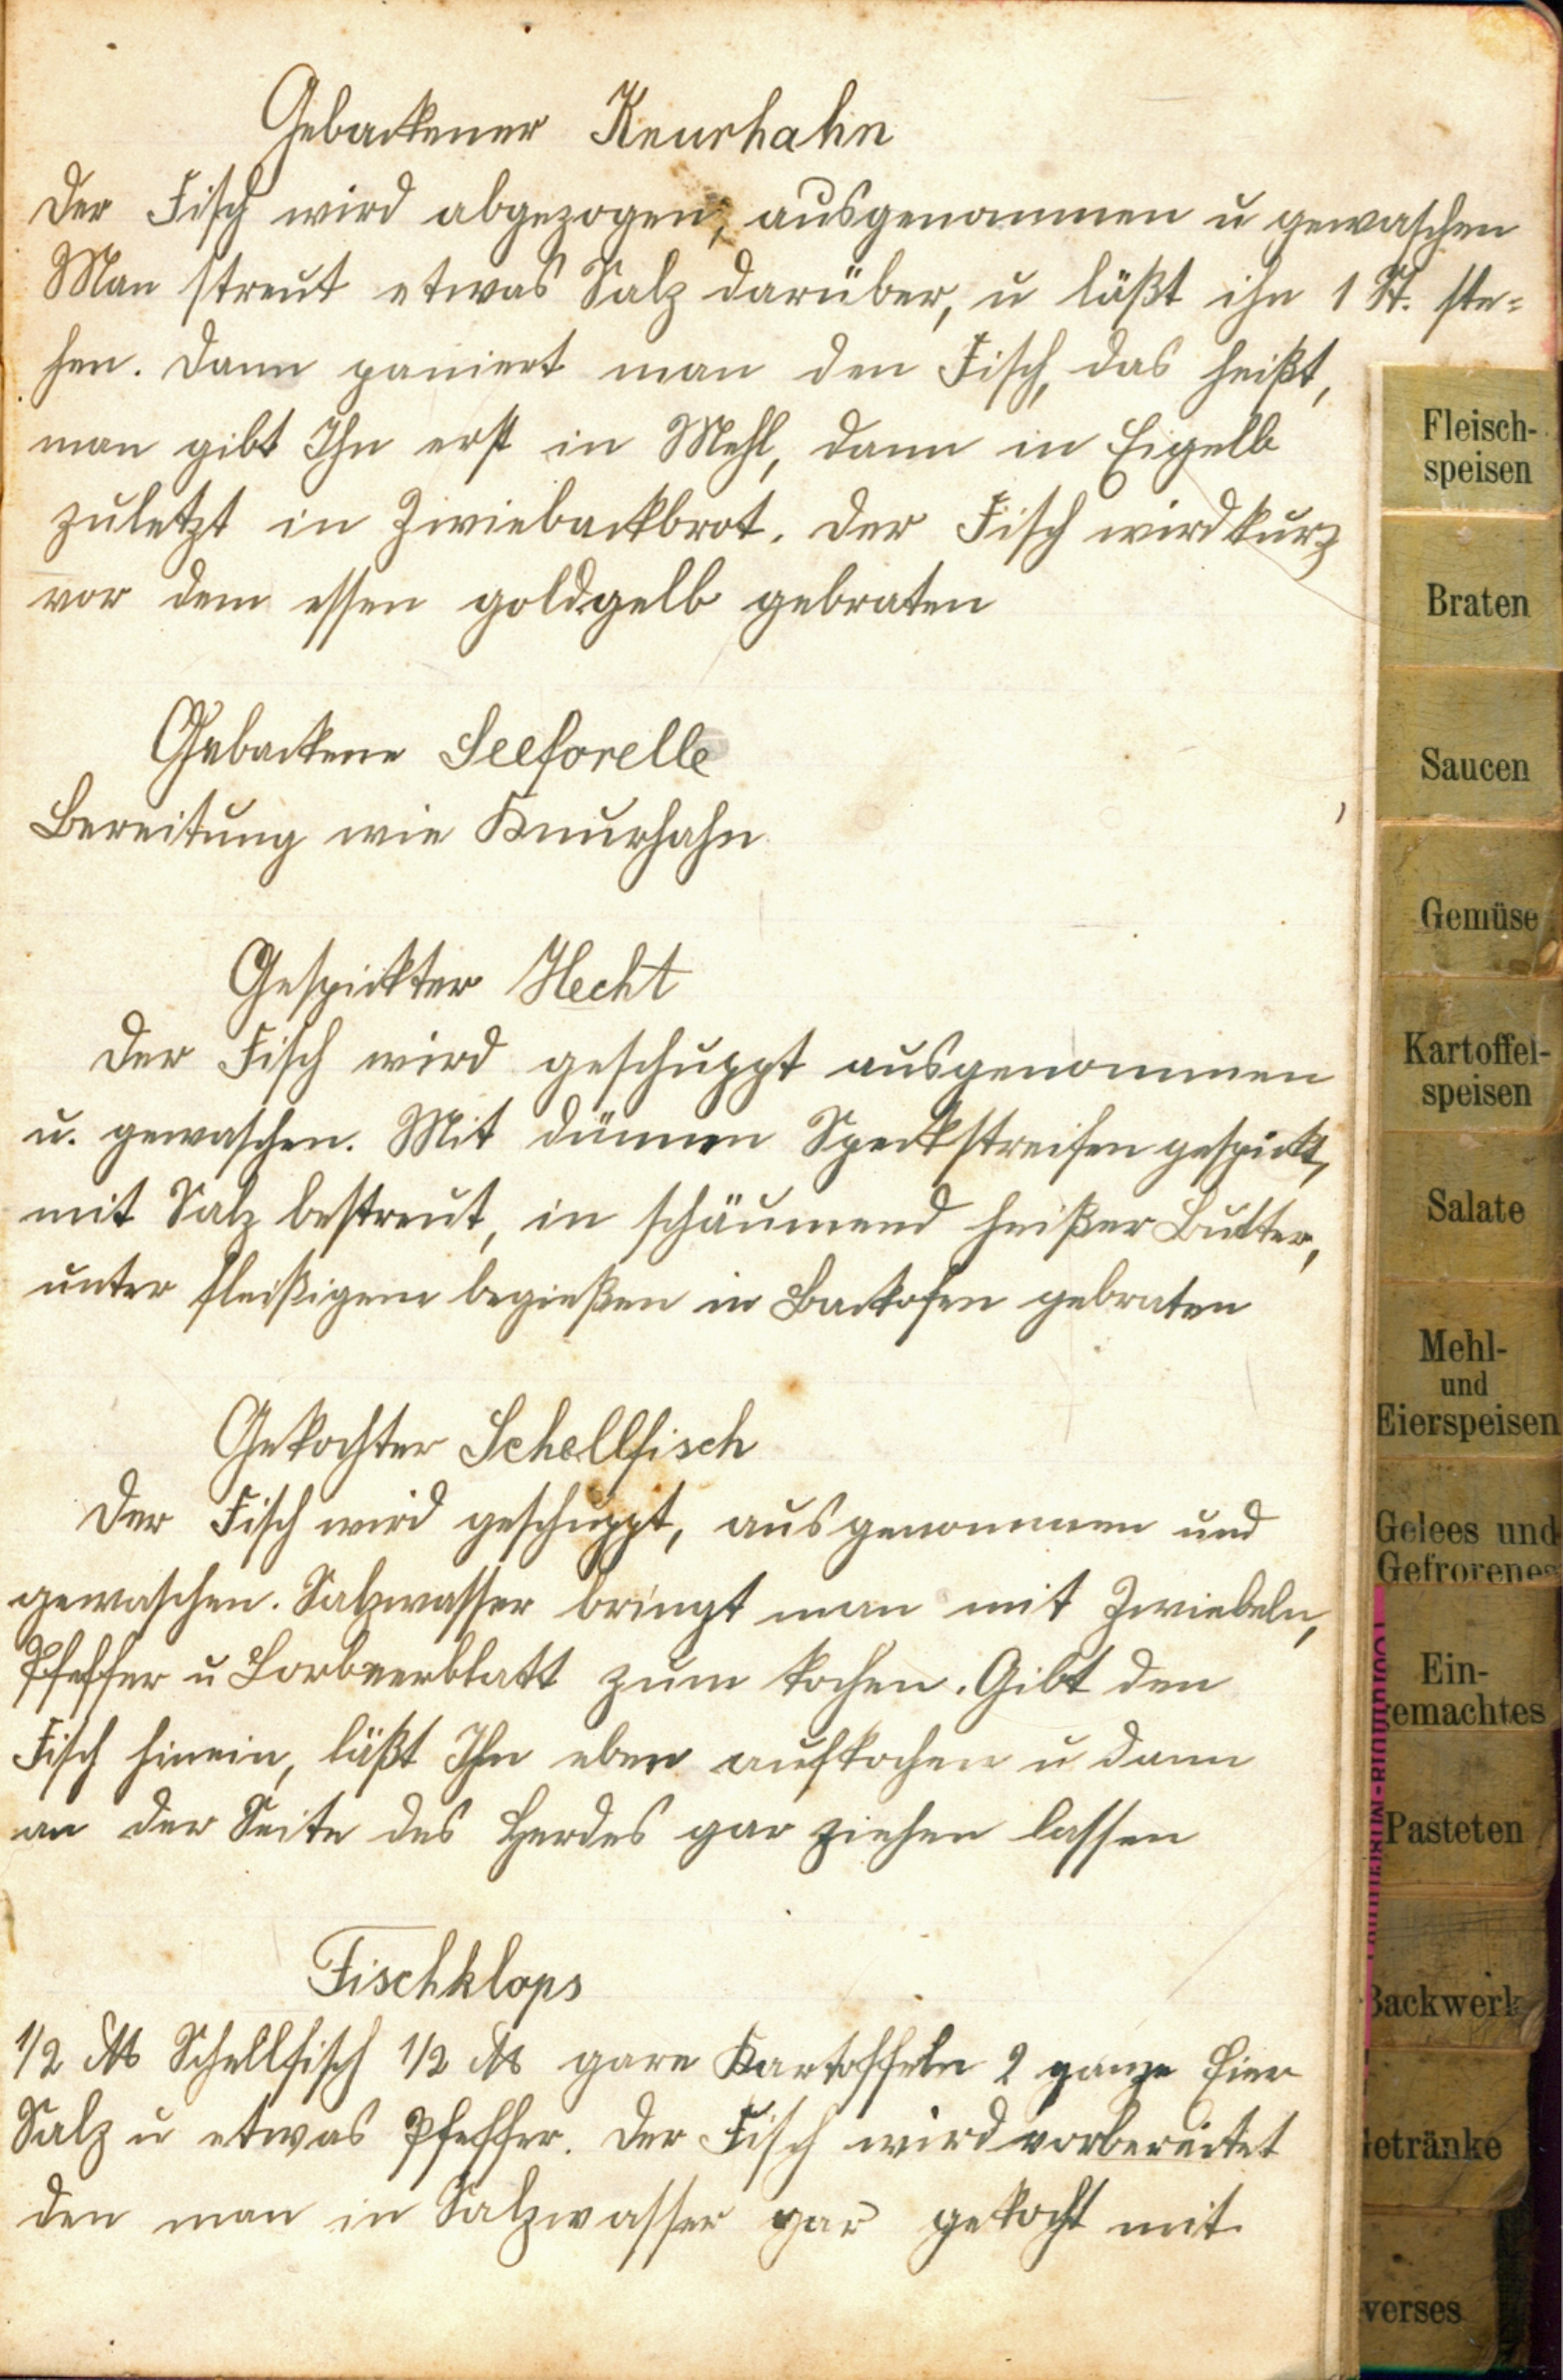 Gebackener Knurhahn
Der Fisch wird abgezogen, ausgenommen u gewaschen
Man streut etwas Salz darüber, u läßt ihn 1 St. ste=
hen. Dann paniert man den Fisch, das heißt,
man gibt Ihn erst in Mehl, dann in Eigelb
zuletzt in Zwiebackbrot. Der Fisch wird kurz
vor dem essen goldgelb gebraten
Gebackene Seeforelle
Bereitung wie Knurhahn
Gespickter Hecht
Der Fisch wird geschuppt ausgenommen
u. gewaschen. Mit dünnen Speckstreifen gespickt,
mit Salz bestreut, in schäumend heißer Butter,
unter fleißigem begießen in Backofen gebraten
Gekochter Schellfisch
Der Fisch wird geschuppt, ausgenommen und
gewaschen. Salzwasser bringt man mit Zwiebeln,
Pfeffer u Lorbeerblatt zum kochen. Gibt den
Fisch hinein, läßt Ihn eben aufkochen u dann
an der Seite des Herdes gar ziehen lassen
Fischklops
1/2 ℔ Schellfisch 1/2 ℔ gare Kartoffeln 2 ganze Eier
Salz u etwas Pfeffer. Der Fisch wird vorbereitet
den man in Salzwasser gar gekocht mit
Fleisch-
speisen
Braten
Saucen
Gemüse
Kartoffel-
speisen
Salate
Mehl-
und
Eierspeisen
Gelees und
Gefrorenes
Ein-
gemachtes
Pasteten
Backwerk
etränke
verses